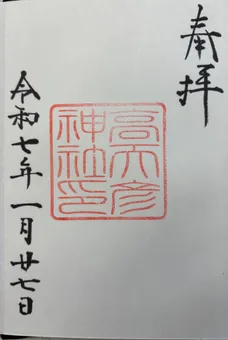 奉拝
高天彦
神社印
令和七年一月廿七日